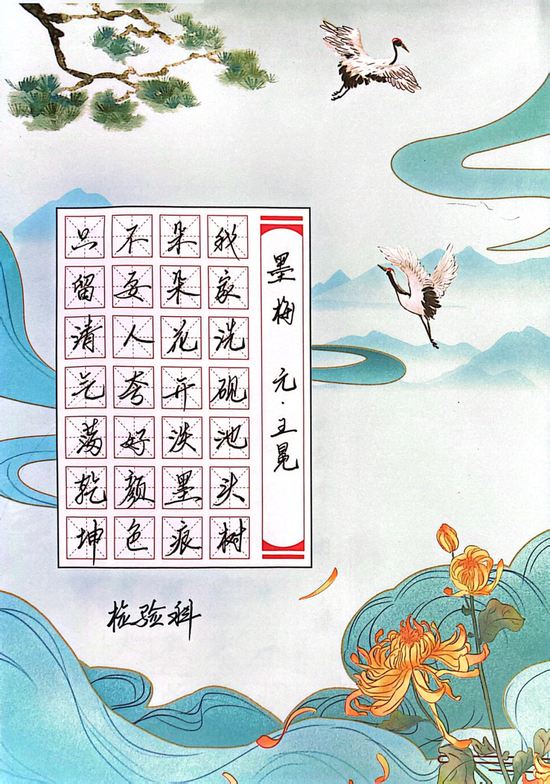 墨梅 元·王冕
我家洗砚池头树
朵朵花开淡墨痕
不要人夸好颜色
只留清气满乾坤
检验科